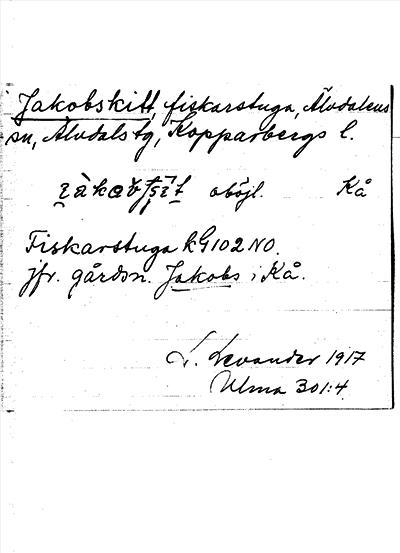 Jakobskitt, fiskarstuga, Älvdalens
sn, Älvdals tg, Kopparbergs l.
oböjl. Kå
Fiskarstuga k G 102 NO.
jfr. gårdsn. Jakobs i Kå.
L. Levander 1917
Ulma 301:4